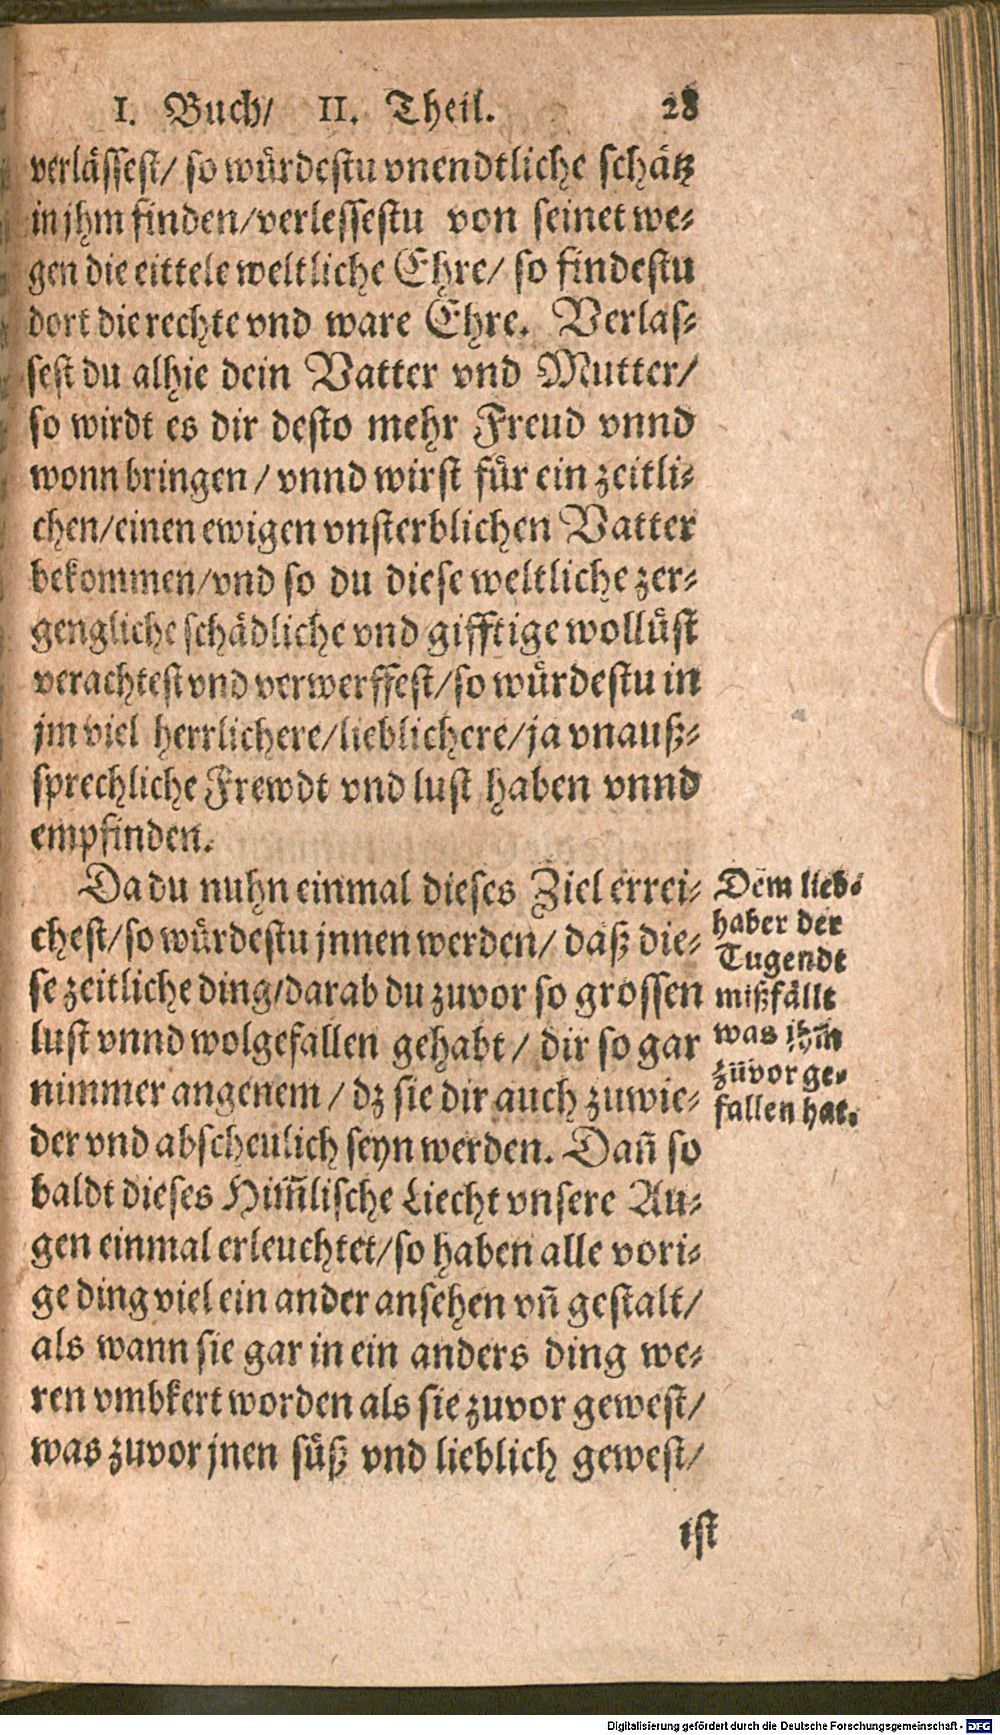 I. Buch/ II. Theil. 28
verlässest/ so würdestu vnendtliche schätz
in jhm finden/verlessestu von seinet we-
gen die eittele weltliche Ehre/ so findestu
dort die rechte vnd ware Ehre. Verlas-
sest du alhie dein Vatter vnd Mutter/
so wirdt es dir desto mehr Freud vnnd
wonn bringen / vnnd wirst für ein zeitli-
chen/einen ewigen vnsterblichen Vatter
bekommen/vnd so du diese weltliche zer-
gengliche schädliche vnd gifftige wollüst
verachtest vnd verwerffest/so würdestu in
jm viel herrlichere/lieblichere/ja vnauß-
sprechliche Frewdt vnd lust haben vnnd
empfinden.
Da du nuhn einmal dieses Ziel errei-
chest/so würdestu jnnen werden/ daß die-
se zeitliche ding/darab du zuvor so grossen
lust vnnd wolgefallen gehabt / dir so gar
nimmer angenem / dz sie dir auch zuwie-
der vnd abscheulich seyn werden. Dañ so
baldt dieses Him̃lische Liecht vnsere Au-
gen einmal erleuchtet/so haben alle vori-
ge ding viel ein ander ansehen vñ gestalt/
als wann sie gar in ein anders ding we-
ren vmbkert worden als sie zuvor gewest/
was zuvor jnen süß vnd lieblich gewest/
ist
Dem lieb-
haber der
Tugendt
mißfällt
was ihm
züvor ge-
fallen hat.
Digitalisierung gefördert durch die Deutsche Forschungsgemeinschaft - DFG